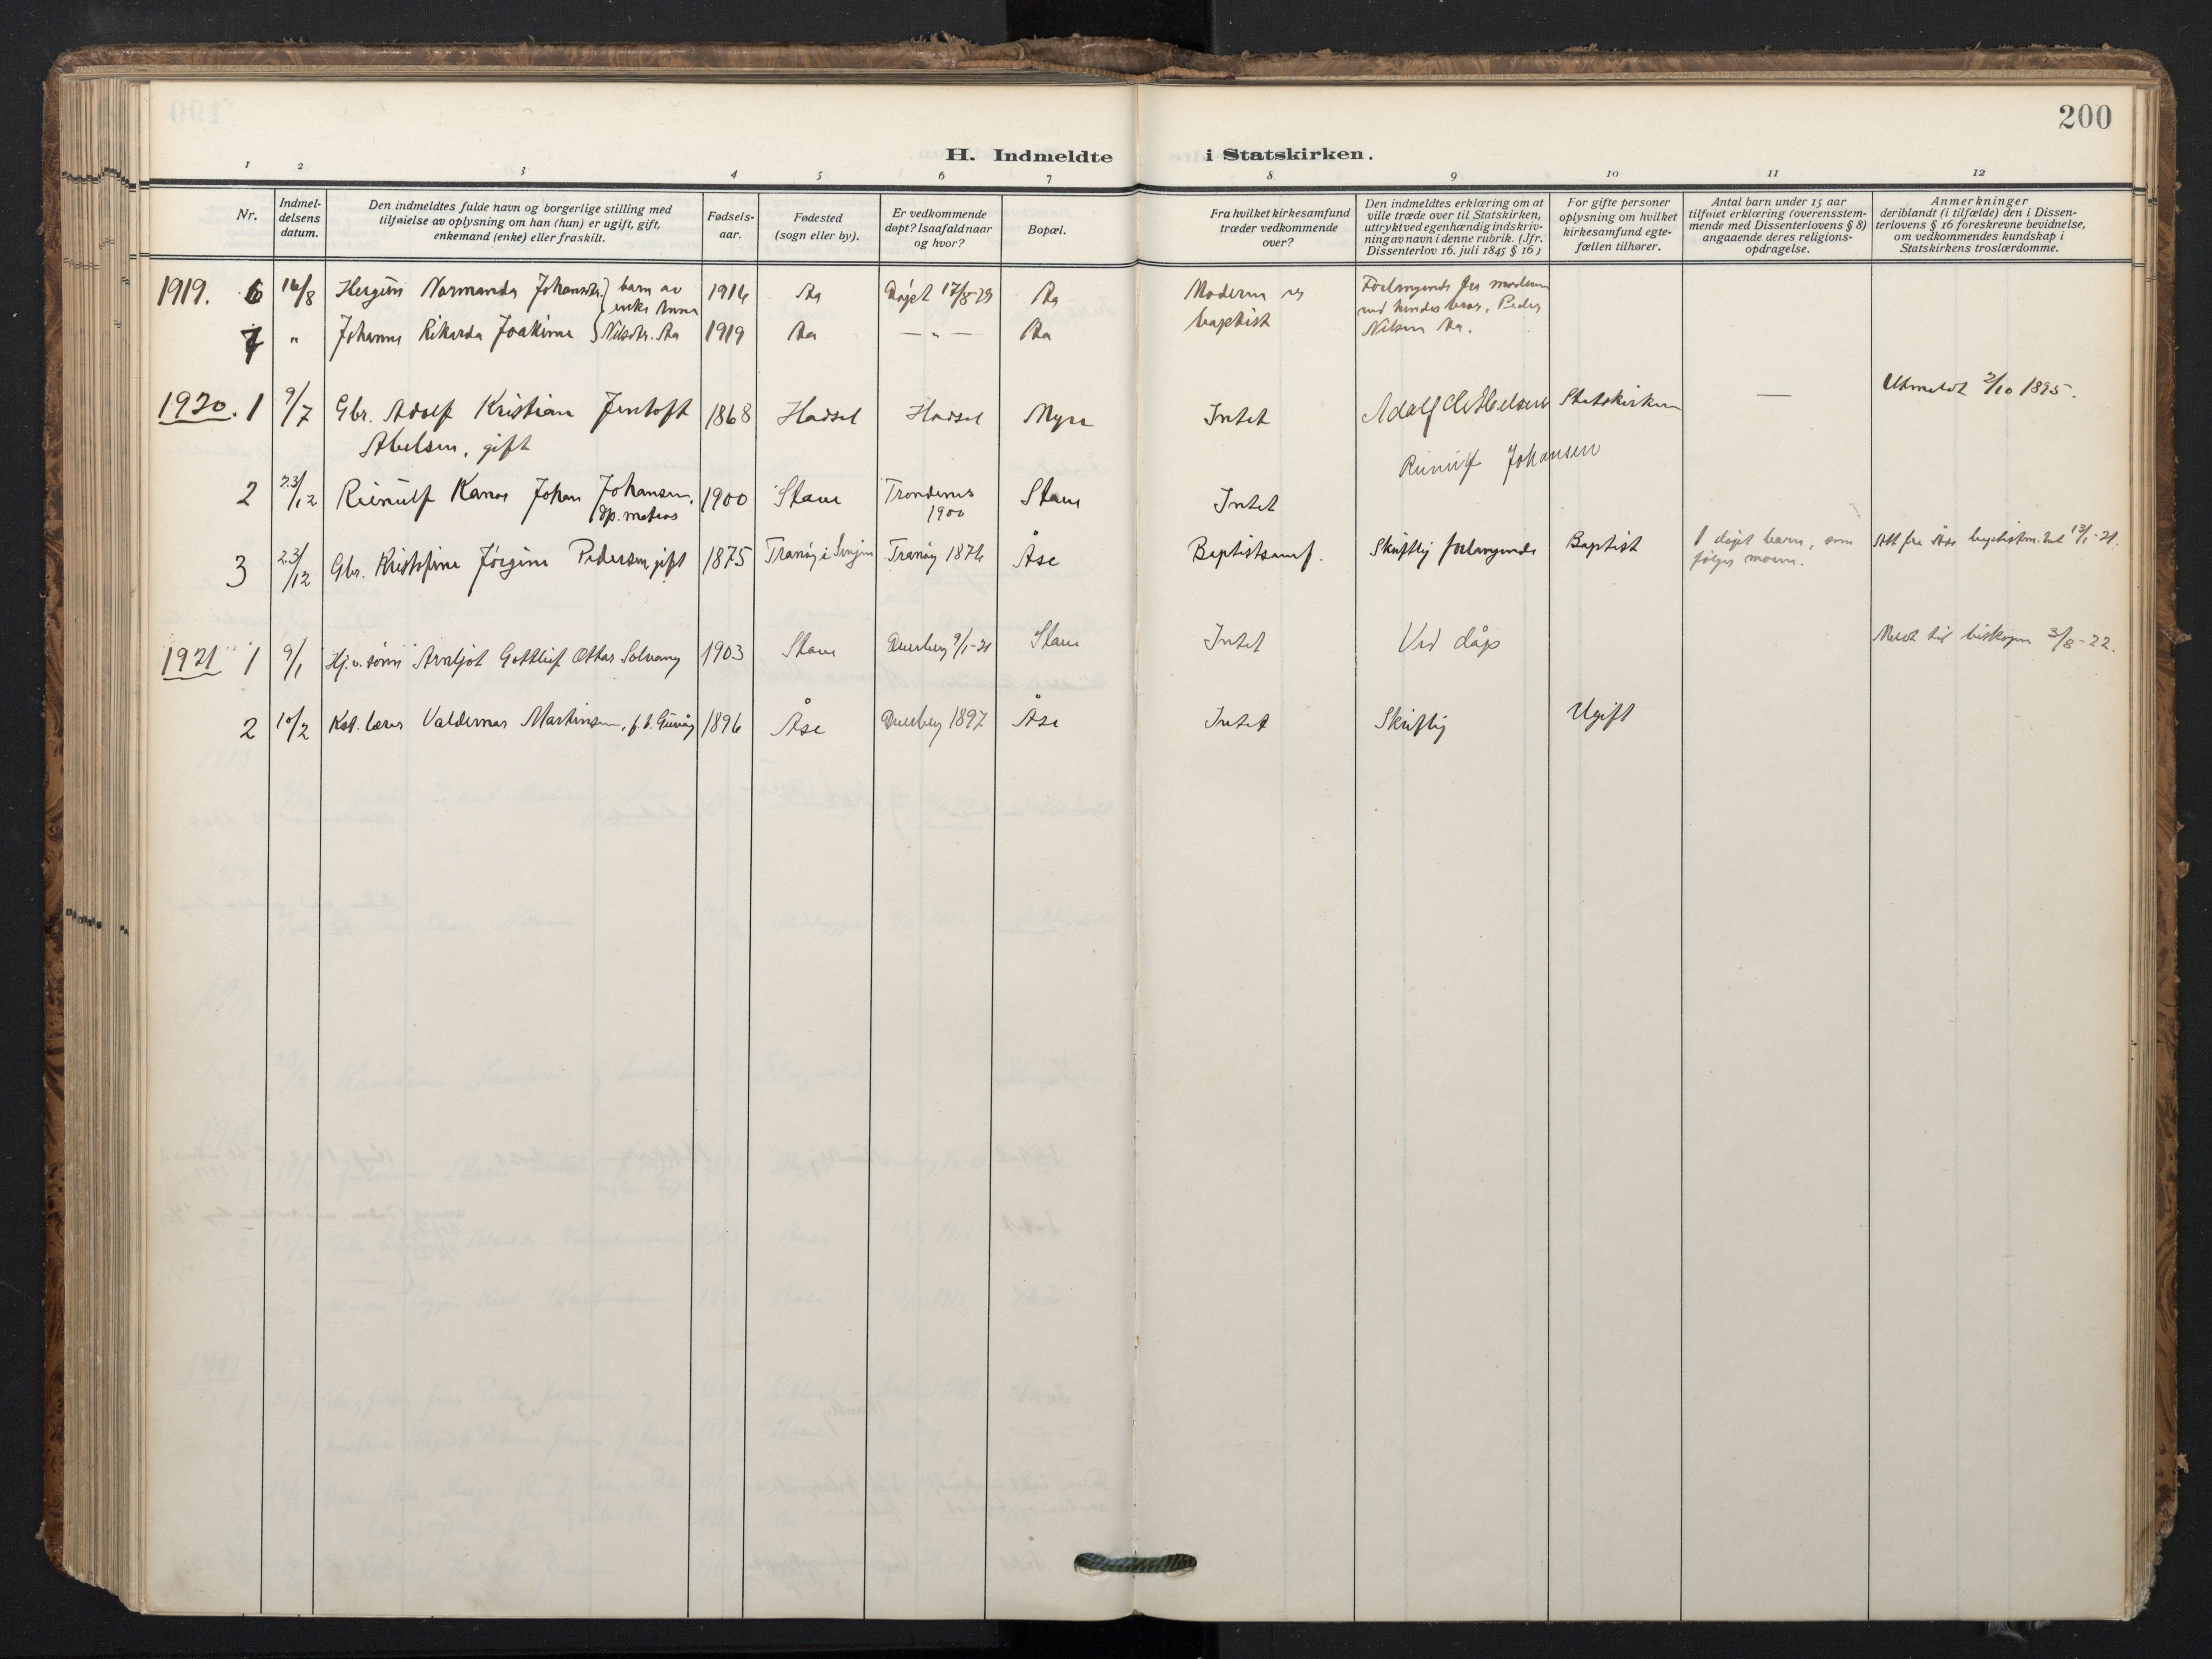 200
H. Indmeldte i Statskirken.
1 2 3 4 5 6 7 8 9 10 11 12
Nr.
Indmel-
delsens
datum.
Den indmeldtes fulde navn og borgerlige stilling med
tilføielse av oplysning om han (hun) er ugift, gift,
enkemand (enke) eller fraskilt.
Fødsels-
aar.
Fødested
(sogn eller by).
Er vedkommende
døpt? Isaafald naar
og hvor?
Bopæl.
Fra hvilket kirkesamfund
træder vedkommende
over?
Den indmeldtes erklæring om at
ville træde over til Statskirken,
uttrykt ved egenhændig indskriv-
ning av navn i denne rubrik. (Jfr.
Dissenterlov 16. juli 1845 § 16)
For gifte personer
oplysning om hvilket
kirkesamfund egte-
fællen tilhører.
Antal barn under 15 aar
tilføiet erklæring (overensstem-
mende med Dissenterlovens § 8)
angaaende deres religions-
opdragelse.
Anmerkninger
deriblandt (i tilfælde) den i Dissen-
terlovens § 16 foreskrevne bevidnelse,
om vedkommendes kundskap i
Statskirkens troslærdomme.
1919. 6 16/8 Normanda barn av enke Anna 1916 Aa Døpt Aa Moderen er
baptist
med hendes
Nilsen Aa.
7 " Johanna Rikarda Joakima 1919 Aa — " — Aa
1920. 1 9/7 Gbr. Adolf Kristian Jentoft 1868 Hadsel Hadsel Myre Intet Statskirken — Utmeldt 2/10 1895.
Abelsen, gift
2 23/12 Johan Johansen, 1900 Stave Trondenes Stave Intet Johansen
1900
3 23/12 Gbr. Jørgine Pedersen, gift 1875 Tranøy i Tranøy 1876 Åse Baptistsamf. Skriftlig forlangende Baptist 1 døpt barn, som
følger moren.
Att. fra 13/1-21.
1921 1 9/1 Gottlief Ottar 1903 Stave 9/1-21 Stave Intet Ved dåp Meldt til biskopen 3/8-22.
2 10/2 lærer Valdemar Martinsen, 1896 Åse 1897 Åse Intet Skriftlig Ugift